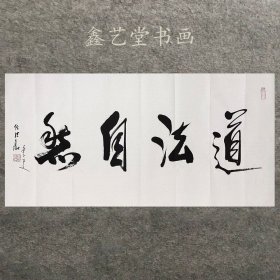 鑫艺堂书画
道法自然